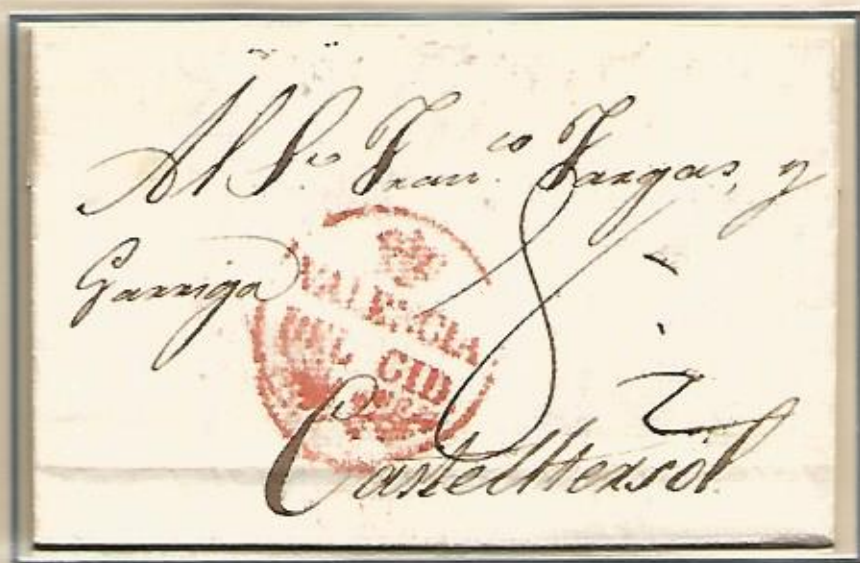 Al S.or Fran.co Vargas, y
Garriga
VALENCIA
DEL CID
8
Castelltersol